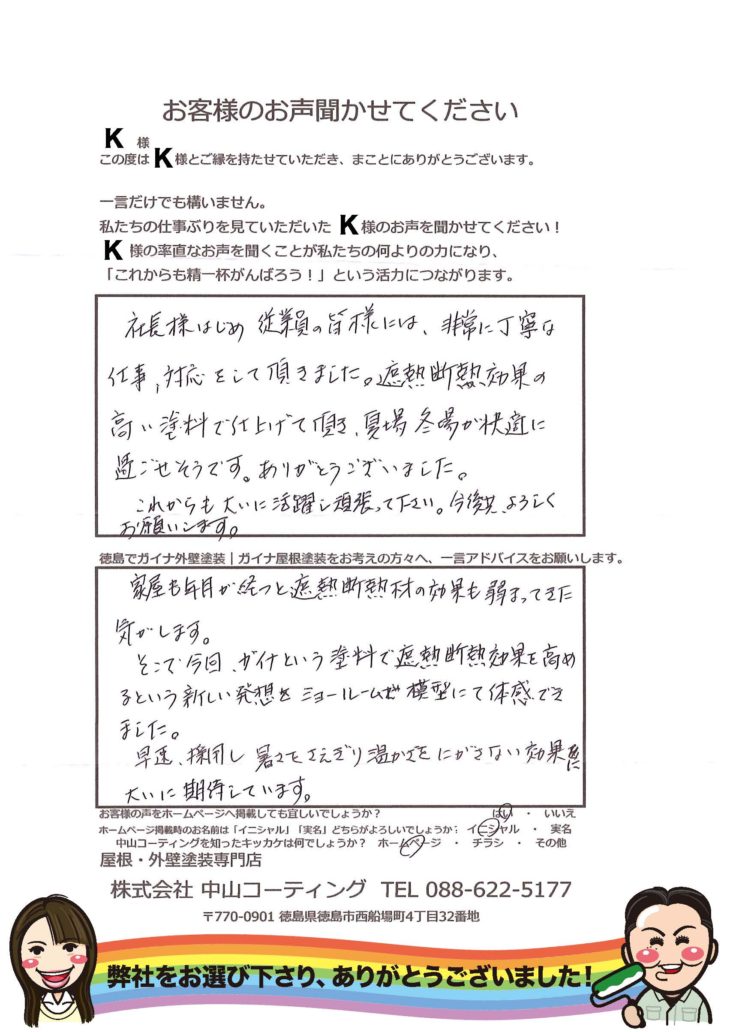 お客様のお声聞かせてください
K 様
この度は K 様とご縁を持たせていただき、まことにありがとうございます。
一言だけでも構いません。
私たちの仕事ぶりを見ていただいた K 様のお声を聞かせてください！
K 様の率直なお声を聞くことが私たちの何よりの力になり、
「これからも精一杯がんばろう！」という活力につながります。
社長様はじめ 従業員の皆様には、非常に丁寧な
仕事,対応をして頂きました。遮熱断熱効果の
高い塗料で仕上げて頂き、夏場 冬場が快適に
過ごせそうです。ありがとうございました。
これからも大いに活躍し頑張って下さい。今後共、よろしく
お願いします。
徳島でガイナ外壁塗装｜ガイナ屋根塗装をお考えの方々へ、一言アドバイスをお願いします。
家屋も年月が経つと遮熱断熱材の効果も弱まってきた
気がします。
そこで今回、ガイナという塗料で遮熱断熱効果を高め
るという新しい発想を ショールームで 模型にて体感でき
ました。
早速、採用し 暑さをさえぎり温かさをにがさない効果に
大いに期待しています。
お客様の声をホームページへ掲載しても宜しいでしょうか？ はい ・ いいえ
ホームページ掲載時のお名前は「イニシャル」「実名」どちらがよろしいでしょうか？ イニシャル ・ 実名
中山コーティングを知ったキッカケは何でしょうか？ ホームページ ・ チラシ ・ その他
屋根・外壁塗装専門店
株式会社 中山コーティング TEL 088-622-5177
〒770-0901 徳島県徳島市西船場町4丁目32番地
弊社をお選び下さり、ありがとうございました！